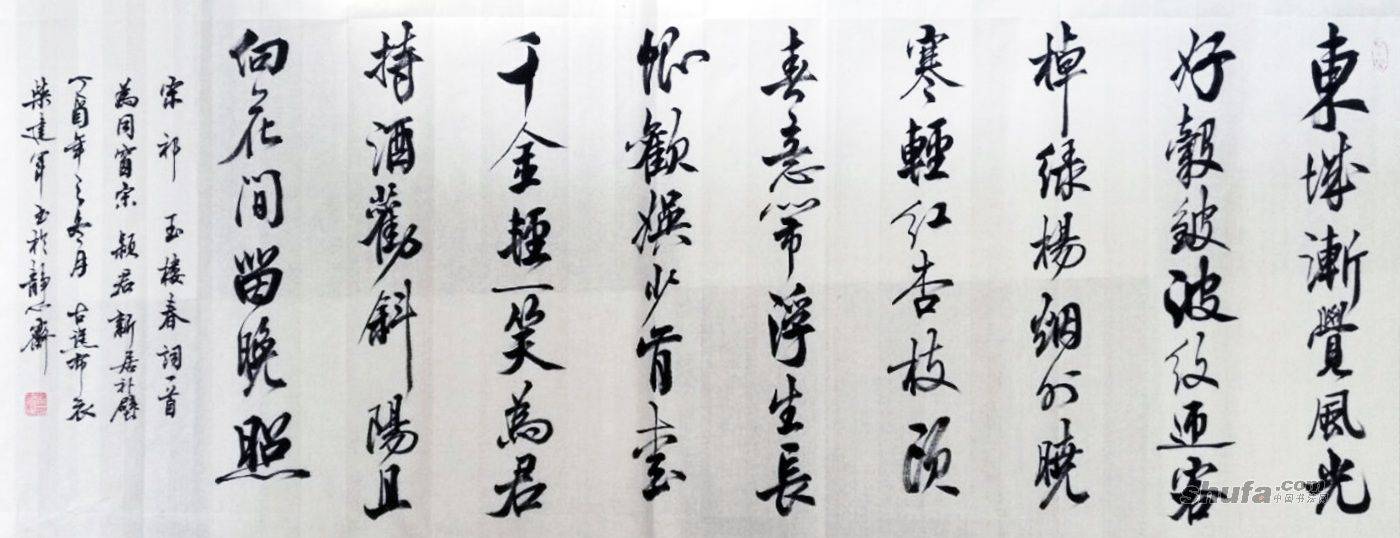 東城漸覺風光
好縠皺波纹迎客
棹绿楊烟外曉
寒輕红杏枝頭
春意闹浮生長
恨歡娱少肯愛
千金輕一笑為君
持酒勸斜陽且
向花間留晚照
宋祁 玉楼春詞一首
為同窗宋颖君新居补壁
丁酉年之冬月 古譙布衣
柴建军书於静心齋
shufa.com
中国书法网